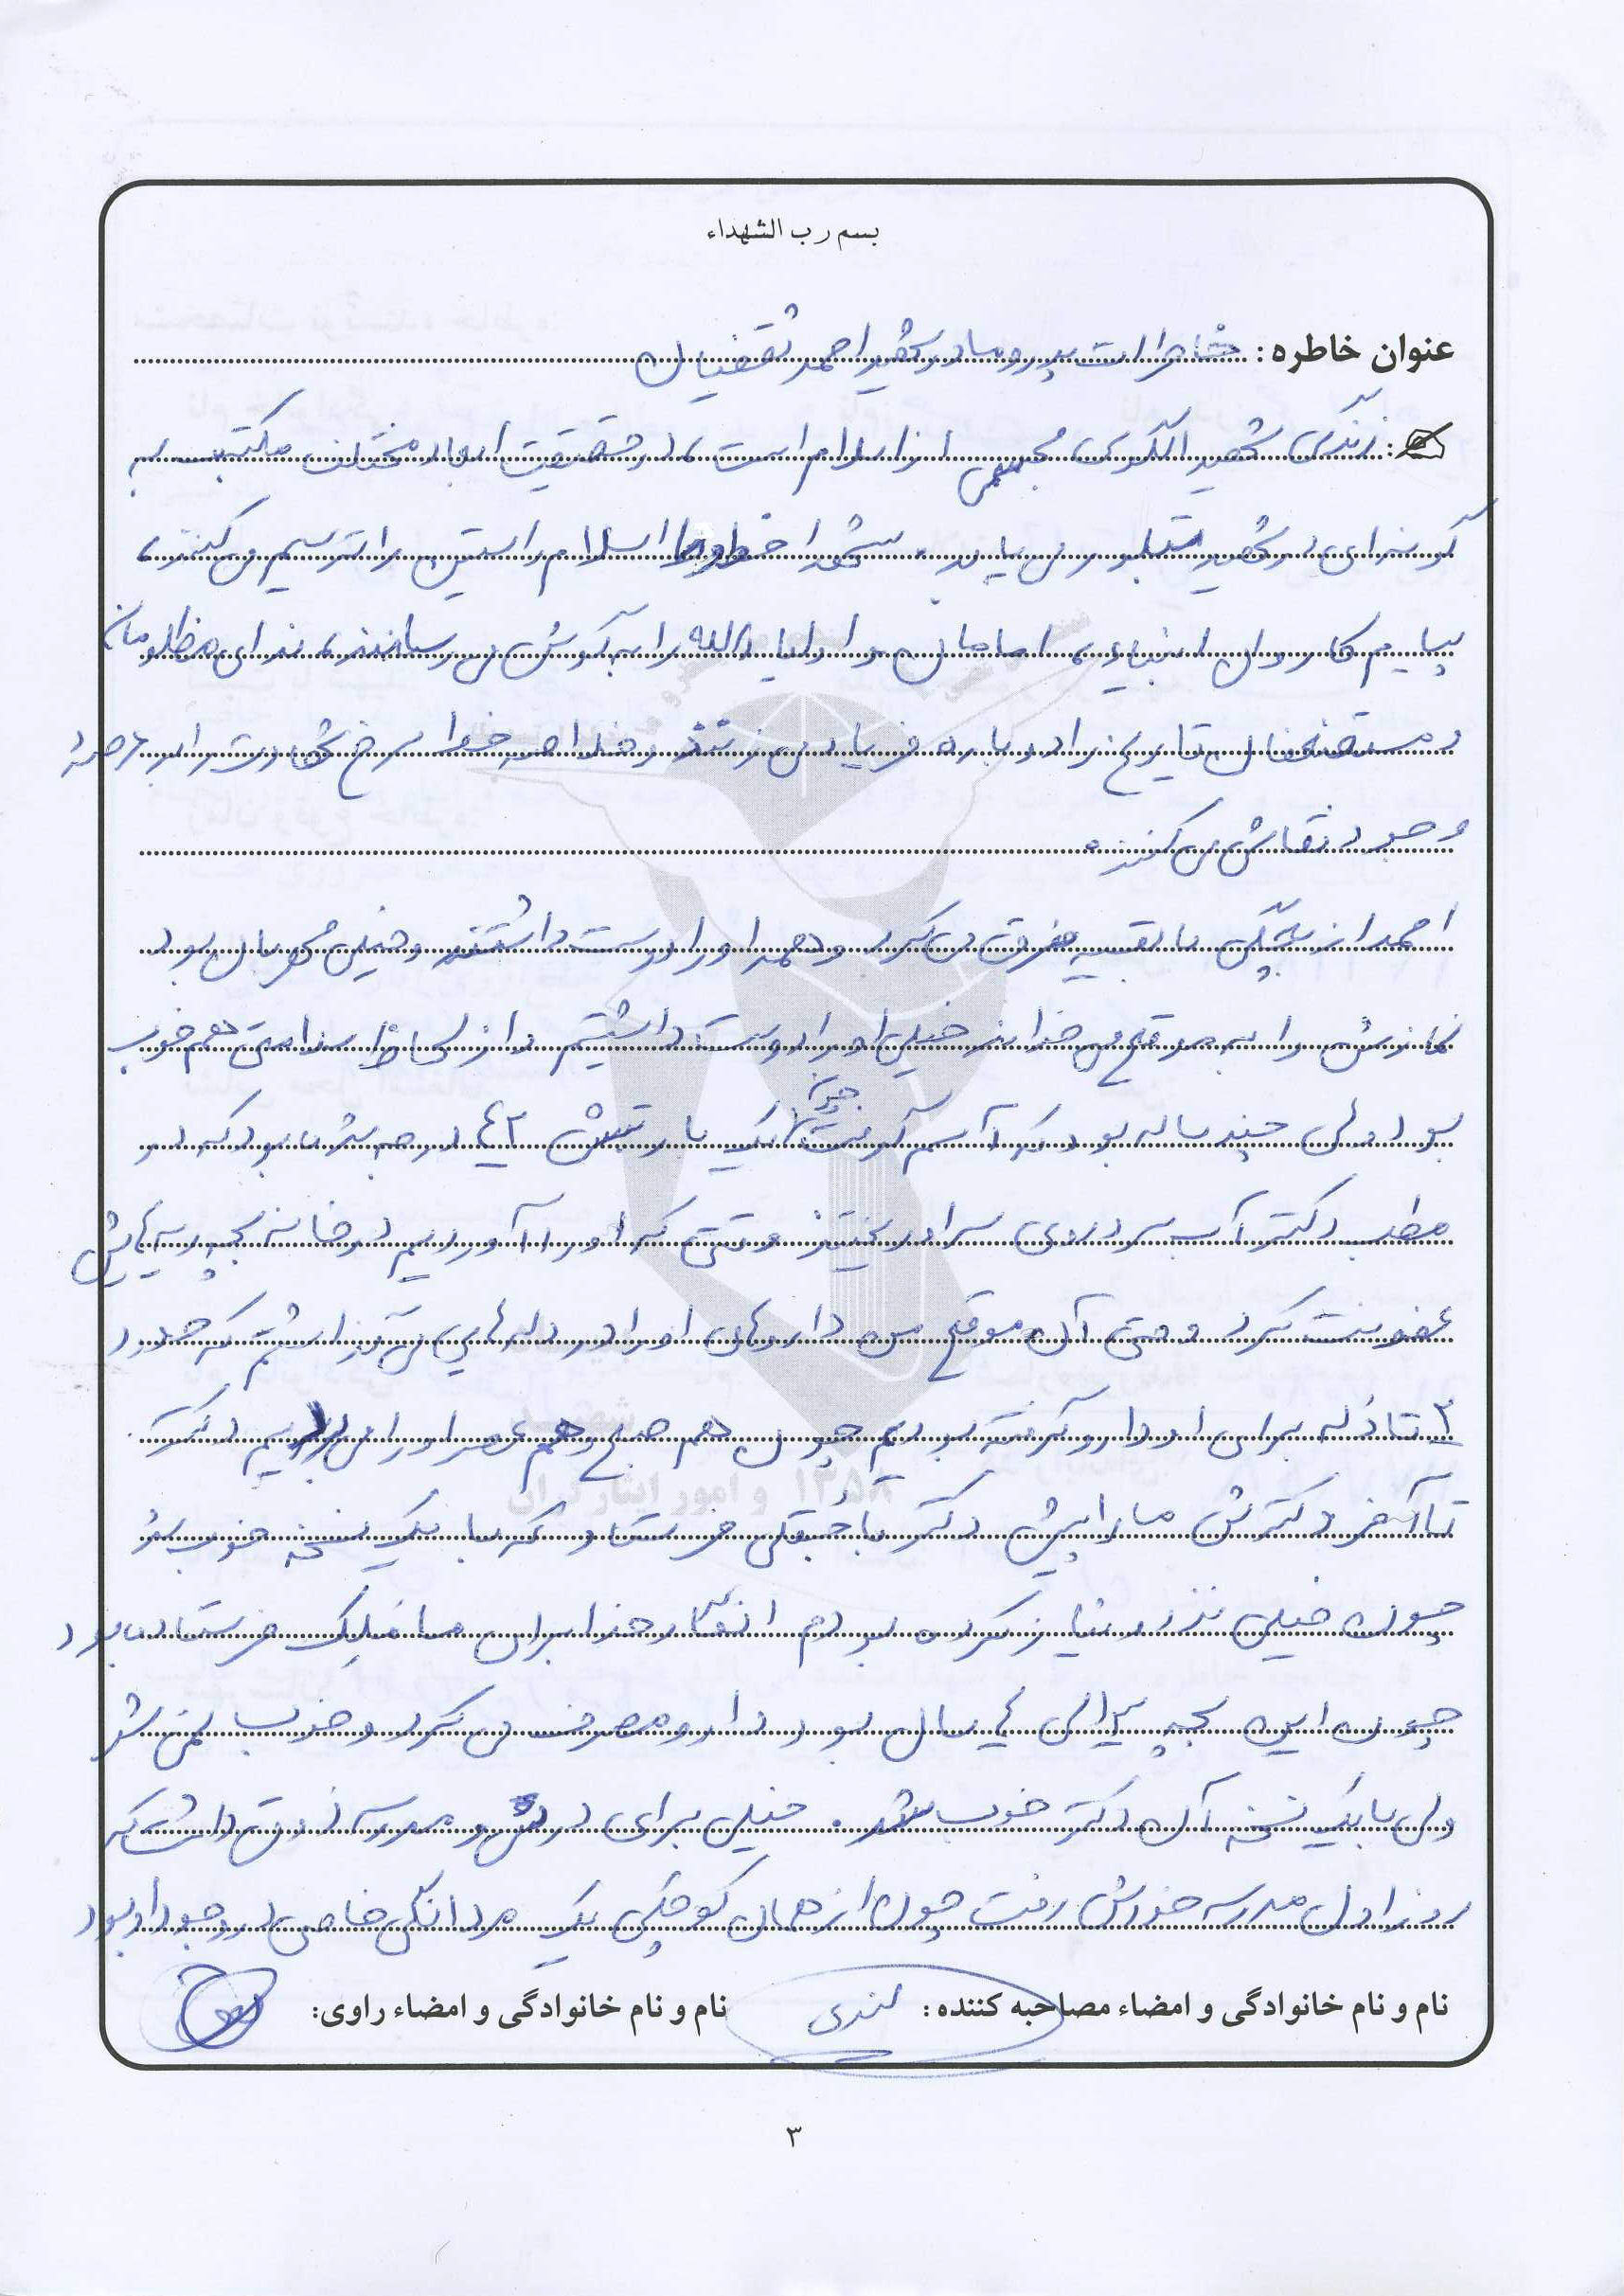 بسم رب الشهداء
عنوان خاطره: خاطرات پدر و مادر شهید احمد ثقفیان
زندگی شهید الگوی مجسمی از اسلام است، در حقیقت ابعاد مختلف مکتب به
گونه‌ای در شهید متبلور می یابد. شهدا خطوط اسلام راستین را ترسیم می کنند،
پیام کاروان انبیاء، امامان و اولیاء الله را به گوش می رسانند، ندای مظلومان
و مستضعفان تاریخ را دوباره فریاد می زنند و خداخواهی سرخ شهادت را بر عرصهٔ
وجود نقاش می کنند.
احمد از بچگی با بقیه فرق می کرد و همه او را دوست داشتند و خیلی مهربان بود
نمازش را به موقع می خواند خیلی او را دوست داشتیم و از لحاظ سلامتی هم خوب
بود ولی چند ساله بود که آسم گرفت چون یک بار تبش ۴۲ درجه شده بود که در
مطب دکتر آب سرد روی سر او ریختند وقتی که او را آوردیم در خانه بچه ریه هایش
عفونت کرد و حتی آن موقع من داروهای او را در دله هایی می گذاشتم که حدود
۲ تا دله برای او دارو گرفته بودیم چون هم صبح و هم عصر او را می بردیم دکتر
تا آخر دکترش ما را پیش دکتر با حبقلی فرستاد که با یک نسخه خوب شد
چون خیلی نذر و نیاز کرده بودم انگار خدا برای ما فلک فرستاده بود
چون این بچه ۳ الی ۴ سال بود دارو مصرف می کرد و خوب نمی شد
ولی با یک نسخه آن دکتر خوب شد. خیلی برای درس و مدرسه ذوق داشت که
روز اول مدرسه خودش رفت چون از همان کوچکی یک مردانگی خاصی در وجود او بود
نام و نام خانوادگی و امضاء مصاحبه کننده: نام و نام خانوادگی و امضاء راوی:
۳